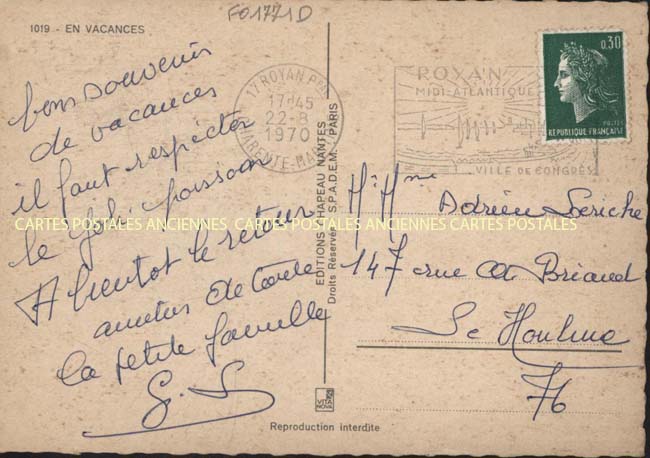 FO1771D
1019 - EN VACANCES
bons souvenirs
de vacances
il faut respecter
le joli poisson
A bientot le retour
amitiés de toute
la petite famille
G. S
17 ROYAN Pal
17H45
22-8
1970
CHARENTE-MAR
ROYAN
MIDI-ATLANTIQUE
VILLE DE CONGRÈS
0,30
REPUBLIQUE FRANÇAISE
EDITIONS CHAPEAU NANTES
Droits Réservés S.P.A.D.E.M. PARIS
Mr Mme Adrien
147 rue Ate Briand
Le Houlme
76
CARTES POSTALES ANCIENNES CARTES POSTALES ANCIENNES CARTES POSTALES
VITA NOVA
Reproduction interdite